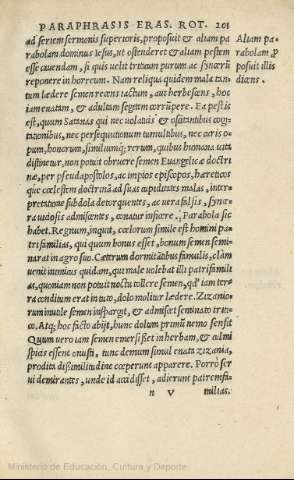 PARAPHRASIS ERAS. ROT. 201
ad seriem sermonis superioris, proposuit & aliam pa
rabolam dominus Iesus, ut ostenderet & aliam pestem
esse cauendam, si quis uelit triticum purum ac syncerũ
reponere in horreum. Nam reliqua quidem mala tan-
tum lædere semen recens iactum, aut herbescens, hoc
iam enatam, & adultam segetem corrũpere. Ea pestis
est, quum Satanas qui nec uolatis & ositantibus cogi-
tationibus, nec persequutionum tumultibus, nec curis o-
pum, honorum, similiumq; rerum, quibus humana uita
distinetur, non potuit obruere semen Euangelicæ doctri
næ, per pseudapostolos, ac impios episcopos, hæreticos
que cœlestem doctrinã ad suas cupiditates malas, inter-
pretatione subdola detorquentes, ac uera falsis, syncæ
ra uitiosis admiscentes, conatur inficere. Parabola sic
habet. Regnum, inquit, cœlorum simile est homini pa-
trifamilias, qui quum bonus esset, bonum semen semi-
narat in agro suo. Cæterum dormitãtibus famulis, clàm
uenit inimicus quidam, qui male uolebat illi patrifamili
as, quoniam non potuit noctu tollere semen, qđ iam ter-
ra conditum erat in tuto, dolo molitur lædere. Zizanio-
rum inutile semen inspargit, & admiscet seminato triti-
co. Atq; hoc facto abijt, hunc dolum primũ nemo sensit
Quum uero iam semen emersisset in herbam, & culmi
spicis essent onusti, tunc demum simul enata zizania,
prodita dissimilitudine cœperunt apparere. Porrò ser
ui demirantes, unde id accidisset, adierunt patremfa-
n V milias.
Aliam pa-
rabolam ꝓ
posuit illis
dicens.
Ministerio de Educación, Cultura y Deporte